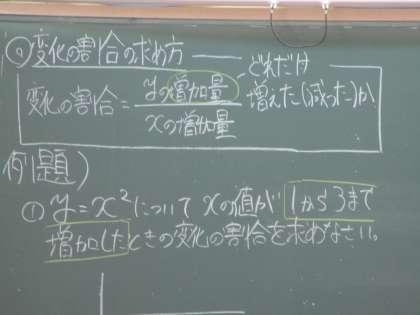 ⓪変化の割合の求め方
変化の割合 = yの増加量 / xの増加量
どれだけ
増えた(減った)か
例題)
① y=x²について xの値が 1から3まで
増加したときの変化の割合を求めなさい。